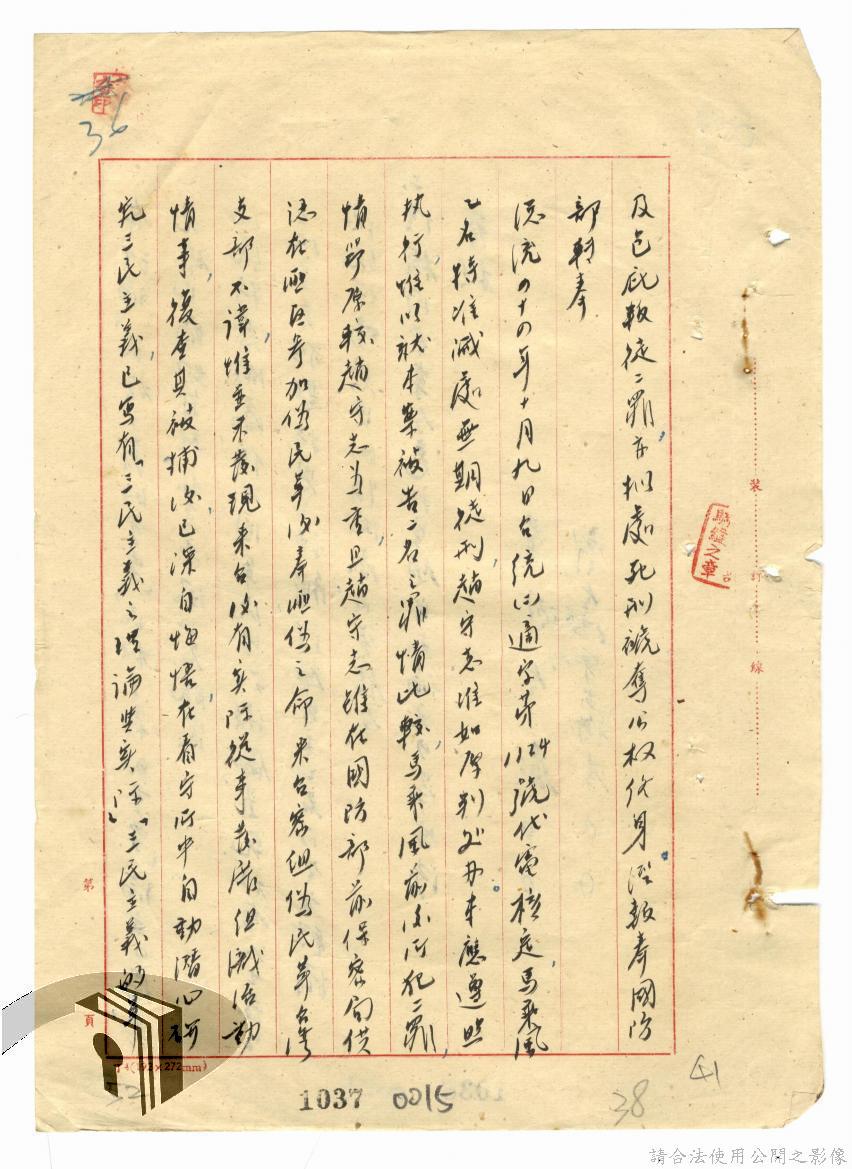 及包庇叛徒二罪,各判處死刑褫奪公權終身,經報奉國防
部轉奉
總統四十四年十月九日台統(四)適字第1124號代電核定,馬乘風
乙名特准減處無期徒刑,趙守志准如原判辦理,本應遵照
執行,惟以就本案被告二名之罪情比較,馬乘風前後所犯二罪,
情節原較趙守志為重,且趙守志雖在國防部前保密局供
認在匪區參加偽民革後奉匪偽之命來台密組偽民革台灣
支部不諱,惟並未發現來台後有實際從事發展組織活動
情事,復查其被捕後,已深自悔悟,在看守所中自動潛心研
究三民主義,已寫有「三民主義之理論與實際」「三民主義的革
裝
訂
線
第
頁
272mm)
1037
0015
38
41
36
請合法使用公開之影像